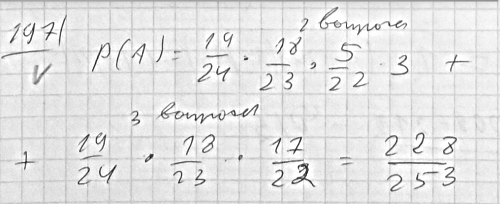 197
2 вопроса
P(A) = 19/24 · 18/23 · 5/22 · 3 +
3 вопроса
+ 19/24 · 18/23 · 17/22 = 228/253